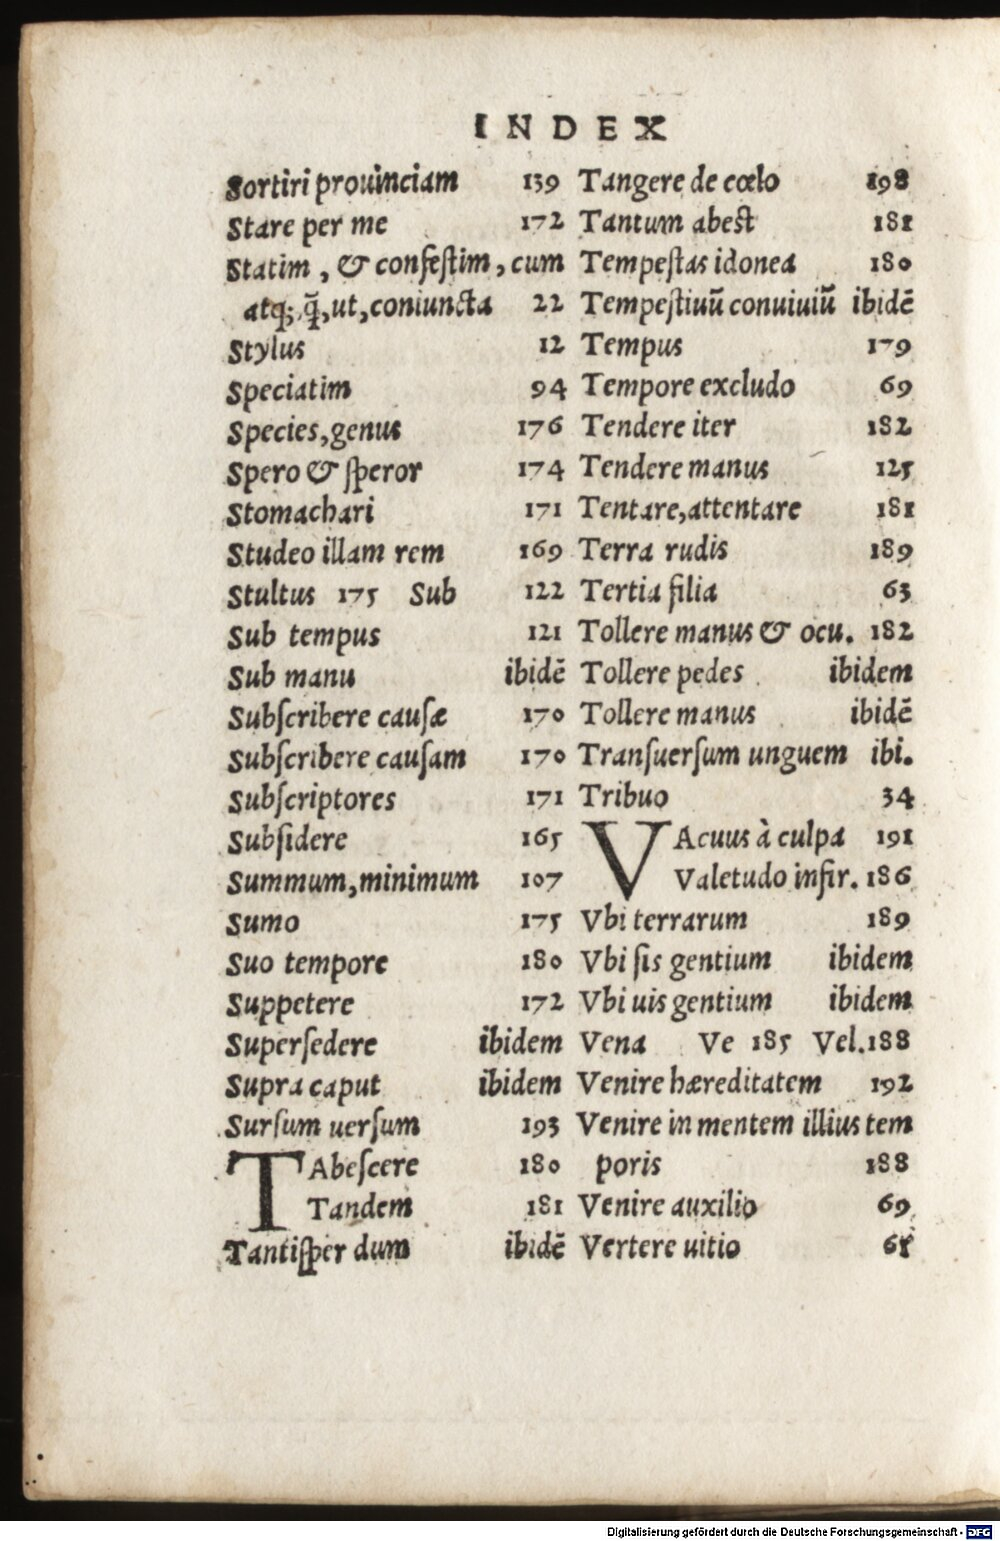 INDEX
Sortiri prouinciam 139
Stare per me 172
Statim, & confeſtim, cum
atq;, q̃, ut, coniuncta 22
Stylus 12
Speciatim 94
Species, genus 176
Spero & ſperor 174
Stomachari 171
Studeo illam rem 169
Stultus 175 Sub 122
Sub tempus 121
Sub manu ibidē
Subſcribere cauſæ 170
Subſcribere cauſam 170
Subſcriptores 171
Subſidere 165
Summum, minimum 107
Sumo 175
Suo tempore 180
Suppetere 172
Superſedere ibidem
Supra caput ibidem
Surſum uerſum 193
TAbeſcere 180
Tandem 181
Tantiſper dum ibidē
Tangere de cœlo 198
Tantum abest 181
Tempeſtas idonea 180
Tempeſtiuū conuiuiū ibidē
Tempus 179
Tempore excludo 69
Tendere iter 182
Tendere manus 125
Tentare, attentare 181
Terra rudis 189
Tertia filia 63
Tollere manus & ocu. 182
Tollere pedes ibidem
Tollere manus ibidē
Tranſuerſum unguem ibi.
Tribuo 34
VAcuus à culpa 191
Valetudo infir. 186
Vbi terrarum 189
Vbi ſis gentium ibidem
Vbi uis gentium ibidem
Vena Ve 185 Vel. 188
Venire hæreditatem 192
Venire in mentem illius tem
poris 188
Venire auxilio 69
Vertere uitio
Digitalisierung gefördert durch die Deutsche Forschungsgemeinschaft - DFG